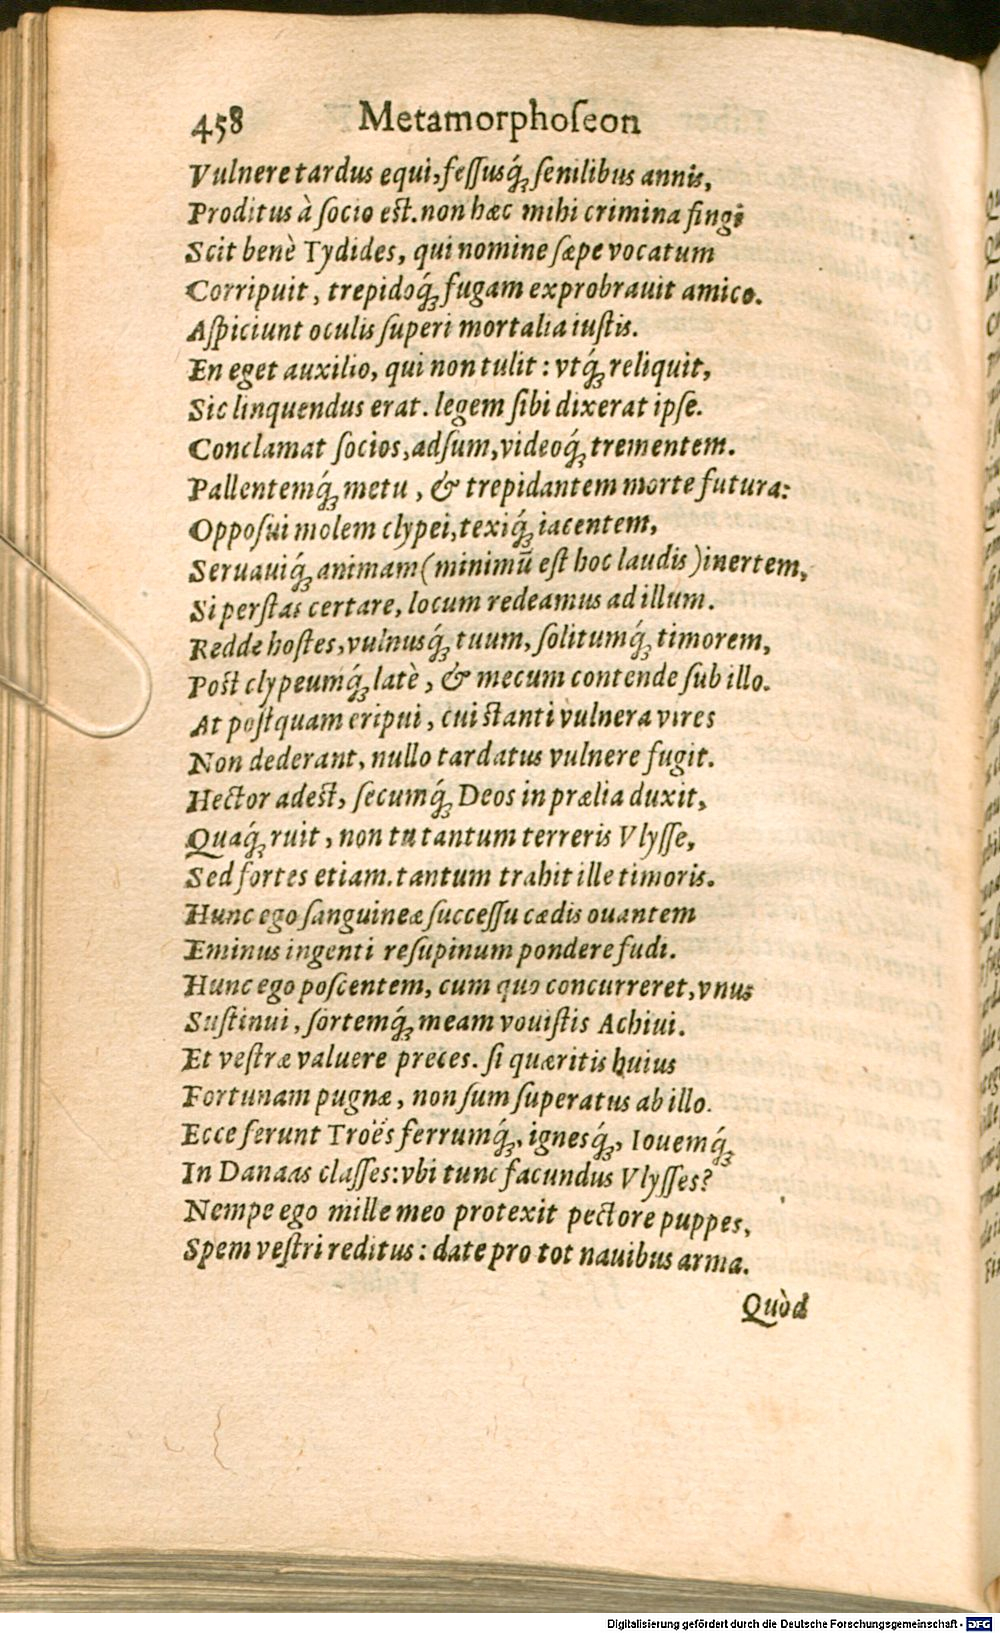 458 Metamorphoſeon
Vulnere tardus equi, feſſusq́; ſenilibus annis,
Proditus à ſocio est. non hæc mihi crimina fingi
Scit benè Tydides, qui nomine ſæpe vocatum
Corripuit, trepidoq́; fugam exprobrauit amico.
Aſpiciunt oculis ſuperi mortalia iuſtis.
En eget auxilio, qui non tulit: vtq́; reliquit,
Sic linquendus erat. legem ſibi dixerat ipſe.
Conclamat ſocios, adſum, videoq́; trementem.
Pallentemq́; metu, & trepidantem morte futura:
Oppoſui molem clypei, texiq́; iacentem,
Seruauiq́; animam (minimū eſt hoc laudis) inertem,
Si perſtas certare, locum redeamus ad illum.
Redde hoſtes, vulnusq́; tuum, ſolitumq́; timorem,
Post clypeumq́; latè, & mecum contende ſub illo.
At poſtquam eripui, cui stanti vulnera vires
Non dederant, nullo tardatus vulnere fugit.
Hector adest, ſecumq́; Deos in prælia duxit,
Quaq́; ruit, non tu tantum terreris Vlyſſe,
Sed fortes etiam. tantum trahit ille timoris.
Hunc ego ſanguineæ ſucceſſu cædis ouantem
Eminus ingenti reſupinum pondere fudi.
Hunc ego poſcentem, cum quo concurreret, vnus
Suſtinui, ſortemq́; meam vouiſtis Achiui.
Et veſtræ valuere preces. ſi quæritis huius
Fortunam pugnæ, non ſum ſuperatus ab illo.
Ecce ferunt Troës ferrumq́;, ignesq́;, Iouemq́;
In Danaas claſſes: vbi tunc facundus Vlyſſes?
Nempe ego mille meo protexit pectore puppes,
Spem veſtri reditus: date pro tot nauibus arma.
Quòd
Digitalisierung gefördert durch die Deutsche Forschungsgemeinschaft - DFG